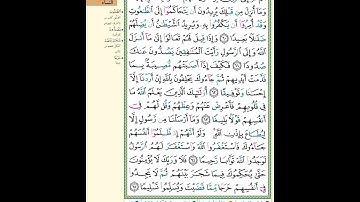 وَمَآ أُنزِلَ مِن قَبْلِكَ يُرِيدُونَ أَن يَتَحَاكَمُوٓاْ إِلَى ٱلطَّٰغُوتِ
وَقَدْ أُمِرُوٓاْ أَن يَكْفُرُواْ بِهِۦ وَيُرِيدُ ٱلشَّيْطَٰنُ أَن يُضِلَّهُمْ
ضَلَٰلًۢا بَعِيدًا ٦٠ وَإِذَا قِيلَ لَهُمْ تَعَالَوْاْ إِلَىٰ مَآ أَنزَلَ
ٱللَّهُ وَإِلَى ٱلرَّسُولِ رَأَيْتَ ٱلْمُنَٰفِقِينَ يَصُدُّونَ عَنكَ
صُدُودًا ٦١ فَكَيْفَ إِذَآ أَصَٰبَتْهُم مُّصِيبَةٌۢ بِمَا
قَدَّمَتْ أَيْدِيهِمْ ثُمَّ جَآءُوكَ يَحْلِفُونَ بِٱللَّهِ إِنْ أَرَدْنَآ إِلَّآ
إِحْسَٰنًا وَتَوْفِيقًا ٦٢ أُوْلَٰٓئِكَ ٱلَّذِينَ يَعْلَمُ ٱللَّهُ مَا
فِي قُلُوبِهِمْ فَأَعْرِضْ عَنْهُمْ وَعِظْهُمْ وَقُل لَّهُمْ فِيٓ
أَنفُسِهِمْ قَوْلًۢا بَلِيغًا ٦٣ وَمَآ أَرْسَلْنَا مِن رَّسُولٍ إِلَّا
لِيُطَاعَ بِإِذْنِ ٱللَّهِ وَلَوْ أَنَّهُمْ إِذ ظَّلَمُوٓاْ أَنفُسَهُمْ
جَآءُوكَ فَٱسْتَغْفَرُواْ ٱللَّهَ وَٱسْتَغْفَرَ لَهُمُ ٱلرَّسُولُ
لَوَجَدُواْ ٱللَّهَ تَوَّابًا رَّحِيمًا ٦٤ فَلَا وَرَبِّكَ لَا يُؤْمِنُونَ
حَتَّىٰ يُحَكِّمُوكَ فِيمَا شَجَرَ بَيْنَهُمْ ثُمَّ لَا يَجِدُواْ
فِيٓ أَنفُسِهِمْ حَرَجًا مِّمَّا قَضَيْتَ وَيُسَلِّمُواْ تَسْلِيمًا ٦٥